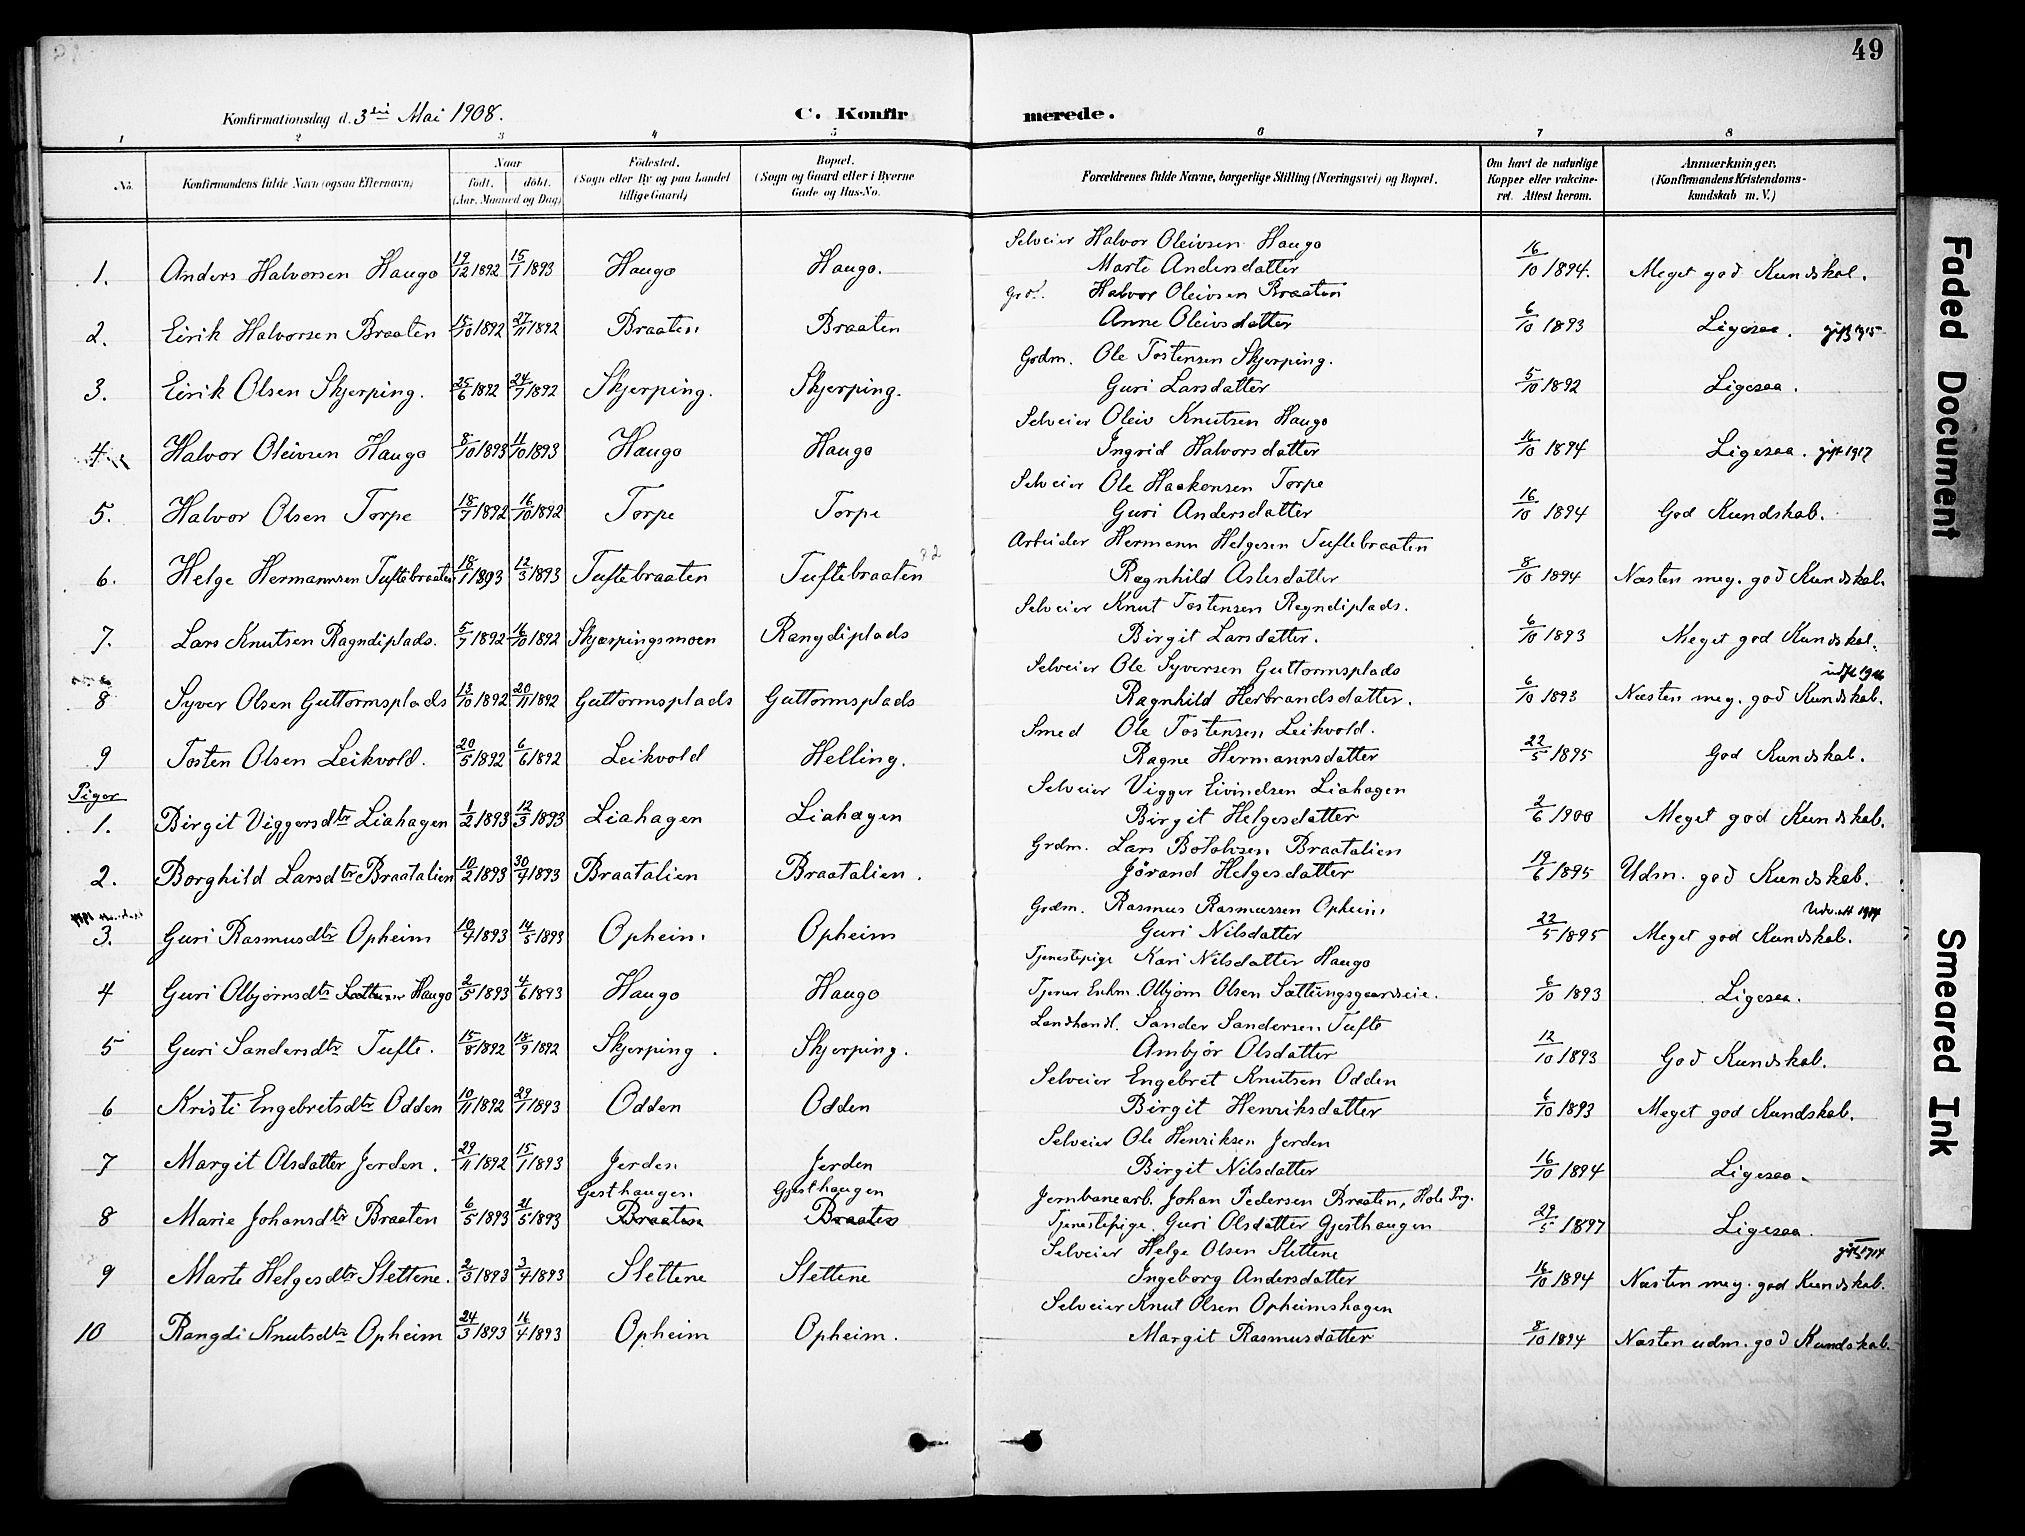 49
Konfirmationsdag d. 3die Mai 1908.
C. Konfirmerede.
1 2 3 4 5 6 7 8
No.
Konfirmandens fulde Navn (ogsaa Efternavn)
Naar
født. døbt.
(Aar. Maaned og Dag)
Fødested.
(Sogn eller By og paa Landet
tillige Gaard)
Bopæl.
(Sogn og Gaard eller i Byerne
Gade og Hus-No.
Forældrenes fulde Navne, borgerlige Stilling (Næringsvei) og Bopæl.
Om havt de naturlige
Kopper eller vakcine-
ret. Attest herom.
Anmærkninger.
(Konfirmandens Kristendoms-
kundskab m. V.)
Selveier Halvor Oleivsen Haugo
1. Anders Halvorsen Haugo 19/12 1892 15/1 1893 Haugo Haugo. Marte Andersdatter 16/10 1894. Meget god Kundskab.
Grd. Halvor Oleivsen Braaten
2. Eirik Halvorsen Braaten 15/10 1892 27/11 1892 Braaten Braaten Anne Oleivsdatter 6/10 1893 Ligesaa. gift 1915
Grdm. Ole Tostensen Skjerping.
3. Eirik Olsen Skjerping. 25/6 1892 24/7 1892 Skjerping. Skjerping. Guri Larsdatter 5/10 1892 Ligesaa.
Selveier Oleiv Knutsen Haugo
4. Halvor Oleivsen Haugo 8/10 1893 11/10 1893 Haugo Haugo Ingrid Halvorsdatter 16/10 1894 Ligesaa. gift 1917
Selveier Ole Haakensen Torpe
5. Halvor Olsen Torpe 18/7 1892 16/10 1892 Torpe Torpe Guri Andersdatter 16/10 1894 God Kundskab.
Arbeider Hermann Helgesen Tuftebraaten
6. Helge Hermannsen Tuftebraaten 18/1 1893 12/3 1893 Tuftebraaten Tuftebraaten Ragnhild Aslesdatter 8/10 1894 Næsten meg. god Kundskab.
Selveier Knut Tostensen Ragndiplads.
7. Lars Knutsen Ragndiplads. 5/7 1892 16/10 1892 Skjærpingsmoen Rangdiplads Birgit Larsdatter. 6/10 1893 Meget god Kundskab.
Selveier Ole Syversen Guttormsplads
8 Syver Olsen Guttormsplads 13/10 1892 20/11 1892 Guttormsplads Guttormsplads Ragnhild Herbrandsdatter. 6/10 1893 Næsten meg. god Kundskab.
Smed Ole Tostensen Leikvold.
9 Tosten Olsen Leikvold. 20/5 1892 6/6 1892 Leikvold Helling. Ragne Hermannsdatter 22/5 1895 God Kundskab.
Piger
Selveier Vigger Eivindsen Liahagen
1. Birgit Viggersdtr Liahagen 1/2 1893 12/3 1893 Liahagen Liahagen Birgit Helgesdatter 2/6 1900 Meget god Kundskab.
Grdm. Lars Botolvsen Braatalien
2. Borghild Larsdtr Braatalien 10/2 1893 30/4 1893 Braatalien Braatalien. Jørand Helgesdatter 19/6 1895 Udm. god Kundskab.
Grdm. Rasmus Rasmussen Opheim
3. Guri Rasmusdtr Opheim 10/4 1893 14/5 1893 Opheim Opheim Guri Nilsdatter 22/5 1895 Meget god Kundskab.
Tjenestepige Kari Nilsdatter Haugo
4 Guri Olbjørnsdtr Haugo 2/5 1893 4/6 1893 Haugo Haugo Tjener Enkm. Olbjørn Olsen Sættungsgaardseie. 6/10 1893 Ligesaa.
Landhandl. Sander Sandersen Tufte
5 Guri Sandersdtr Tufte. 15/8 1892 18/9 1892 Skjerping. Skjerping. Ambjør Olsdatter 12/10 1893 God Kundskab.
Selveier Engebret Knutsen Odden
6 Kristi Engebretsdtr Odden 10/11 1892 29/1 1893 Odden Odden Birgit Henriksdatter 6/10 1893 Meget god Kundskab.
Selveier Ole Henriksen Jorden
7 Margit Olsdatter Jorden. 29/11 1892 15/1 1893 Jorden Jorden Birgit Nilsdatter 16/10 1894 Ligesaa.
Gjesthaugen Gjesthaugen Jernbanearb. Johan Pedersen Braaten, Hole Prg.
8 Marie Johansdtr Braaten 6/5 1893 21/5 1893 Braaten Braaten Tjenestepige. Guri Olsdatter Gjesthaugen 29/5 1897 Ligesaa.
Selveier Helge Olsen Slettene gift 1914
9 Marte Helgesdtr Slettene. 2/3 1893 3/4 1893 Slettene Slettene Ingeborg Andersdatter 16/10 1894 Næsten meg. god Kundskab.
Selveier Knut Olsen Opheimshagen
10 Rangdi Knutsdtr Opheim 24/3 1893 16/4 1893 Opheim Opheim. Margit Rasmusdatter 8/10 1894 Næsten udm. god Kundskab.
Faded Document
Smeared Ink